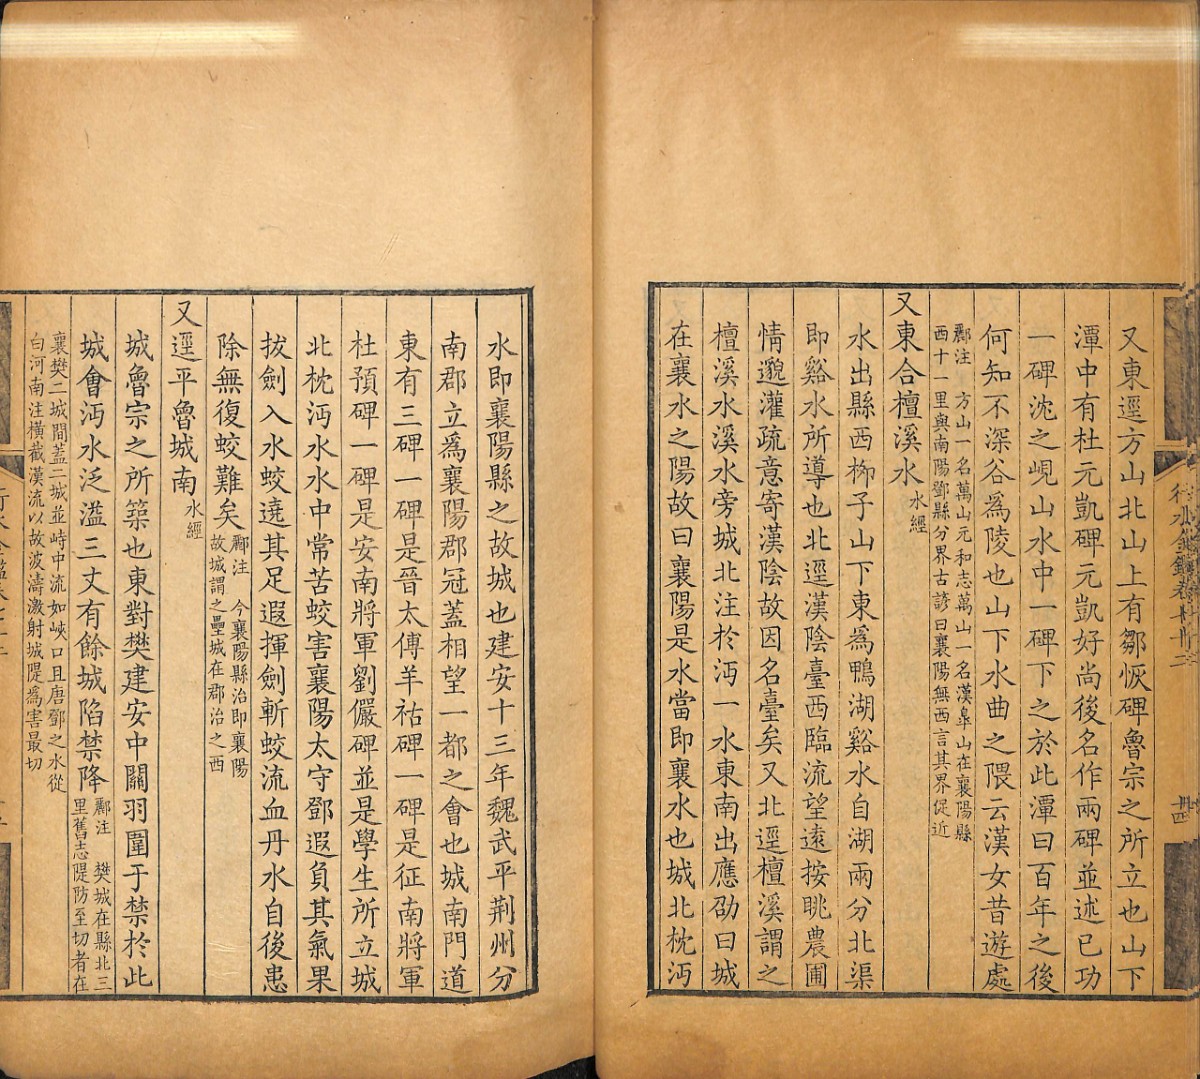 又東逕方山北山上有鄒恢碑魯宗之所立也山下
潭中有杜元凱碑元凱好尚後名作兩碑並述已功
一碑沈之峴山水中一碑下之於此潭曰百年之後
何知不深谷爲陵也山下水曲之隈云漢女昔遊處
酈注　方山一名萬山元和志萬山一名漢皐山在襄陽縣
西十一里與南陽鄧縣分界古諺曰襄陽無西言其界促近
又東合檀溪水水經
水出縣西栁子山下東爲鴨湖谿水自湖兩分北渠
即谿水所導也北逕漢陰臺西臨流望遠按眺農圃
情邈灌疏意寄漢陰故因名臺矣又北逕檀溪謂之
檀溪水溪水旁城北注於沔一水東南出應劭曰城
在襄水之陽故曰襄陽是水當即襄水也城北枕沔
水即襄陽縣之故城也建安十三年魏武平荆州分
南郡立爲襄陽郡冠蓋相望一都之會也城南門道
東有三碑一碑是晉太傅羊祜碑一碑是征南將軍
杜預碑一碑是安南將軍劉儼碑並是學生所立城
北枕沔水水中常苦蛟害襄陽太守鄧遐負其氣果
拔劍入水蛟遶其足遐揮劍斬蛟流血丹水自後患
除無復蛟難矣酈注　今襄陽縣治即襄陽
故城謂之壘城在郡治之西
又逕平魯城南水經
城魯宗之所築也東對樊建安中關羽圍于禁於此
城會沔水泛溢三丈有餘城陷禁降酈注　樊城在縣北三
里舊志隄防至切者在
襄樊二城間蓋二城並峙中流如峽口且唐鄧之水從
白河南注橫截漢流以故波濤激射城隄爲害最切